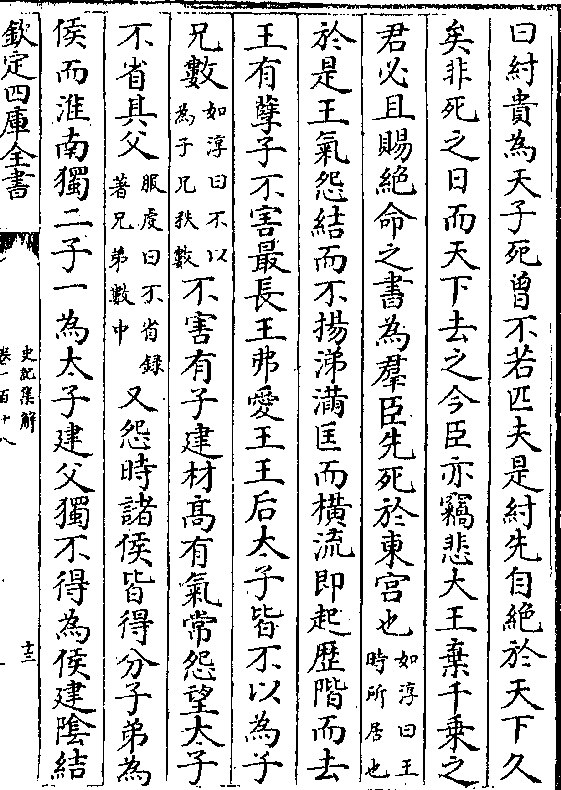 曰紂貴為天子死曾不若匹夫是紂先自絶於天下久
矣非死之日而天下去之今臣亦竊悲大王棄千乗之
君必且賜絶命之書為羣臣先死於東宮也如淳曰王時所居也
於是王氣怨結而不揚涕滿匡而横流即起歴階而去
王有孽子不害最長王弗愛王王后太子皆不以為子
兄數如淳曰不以為子兄秩數不害有子建材髙有氣常怨望太子
不省其父服虔曰不省録著兄弟數中又怨時諸侯皆得分子弟為
侯而淮南獨二子一為太子建父獨不得為侯建隂結
欽定四庫全書
史記集解
卷一百十八
十三